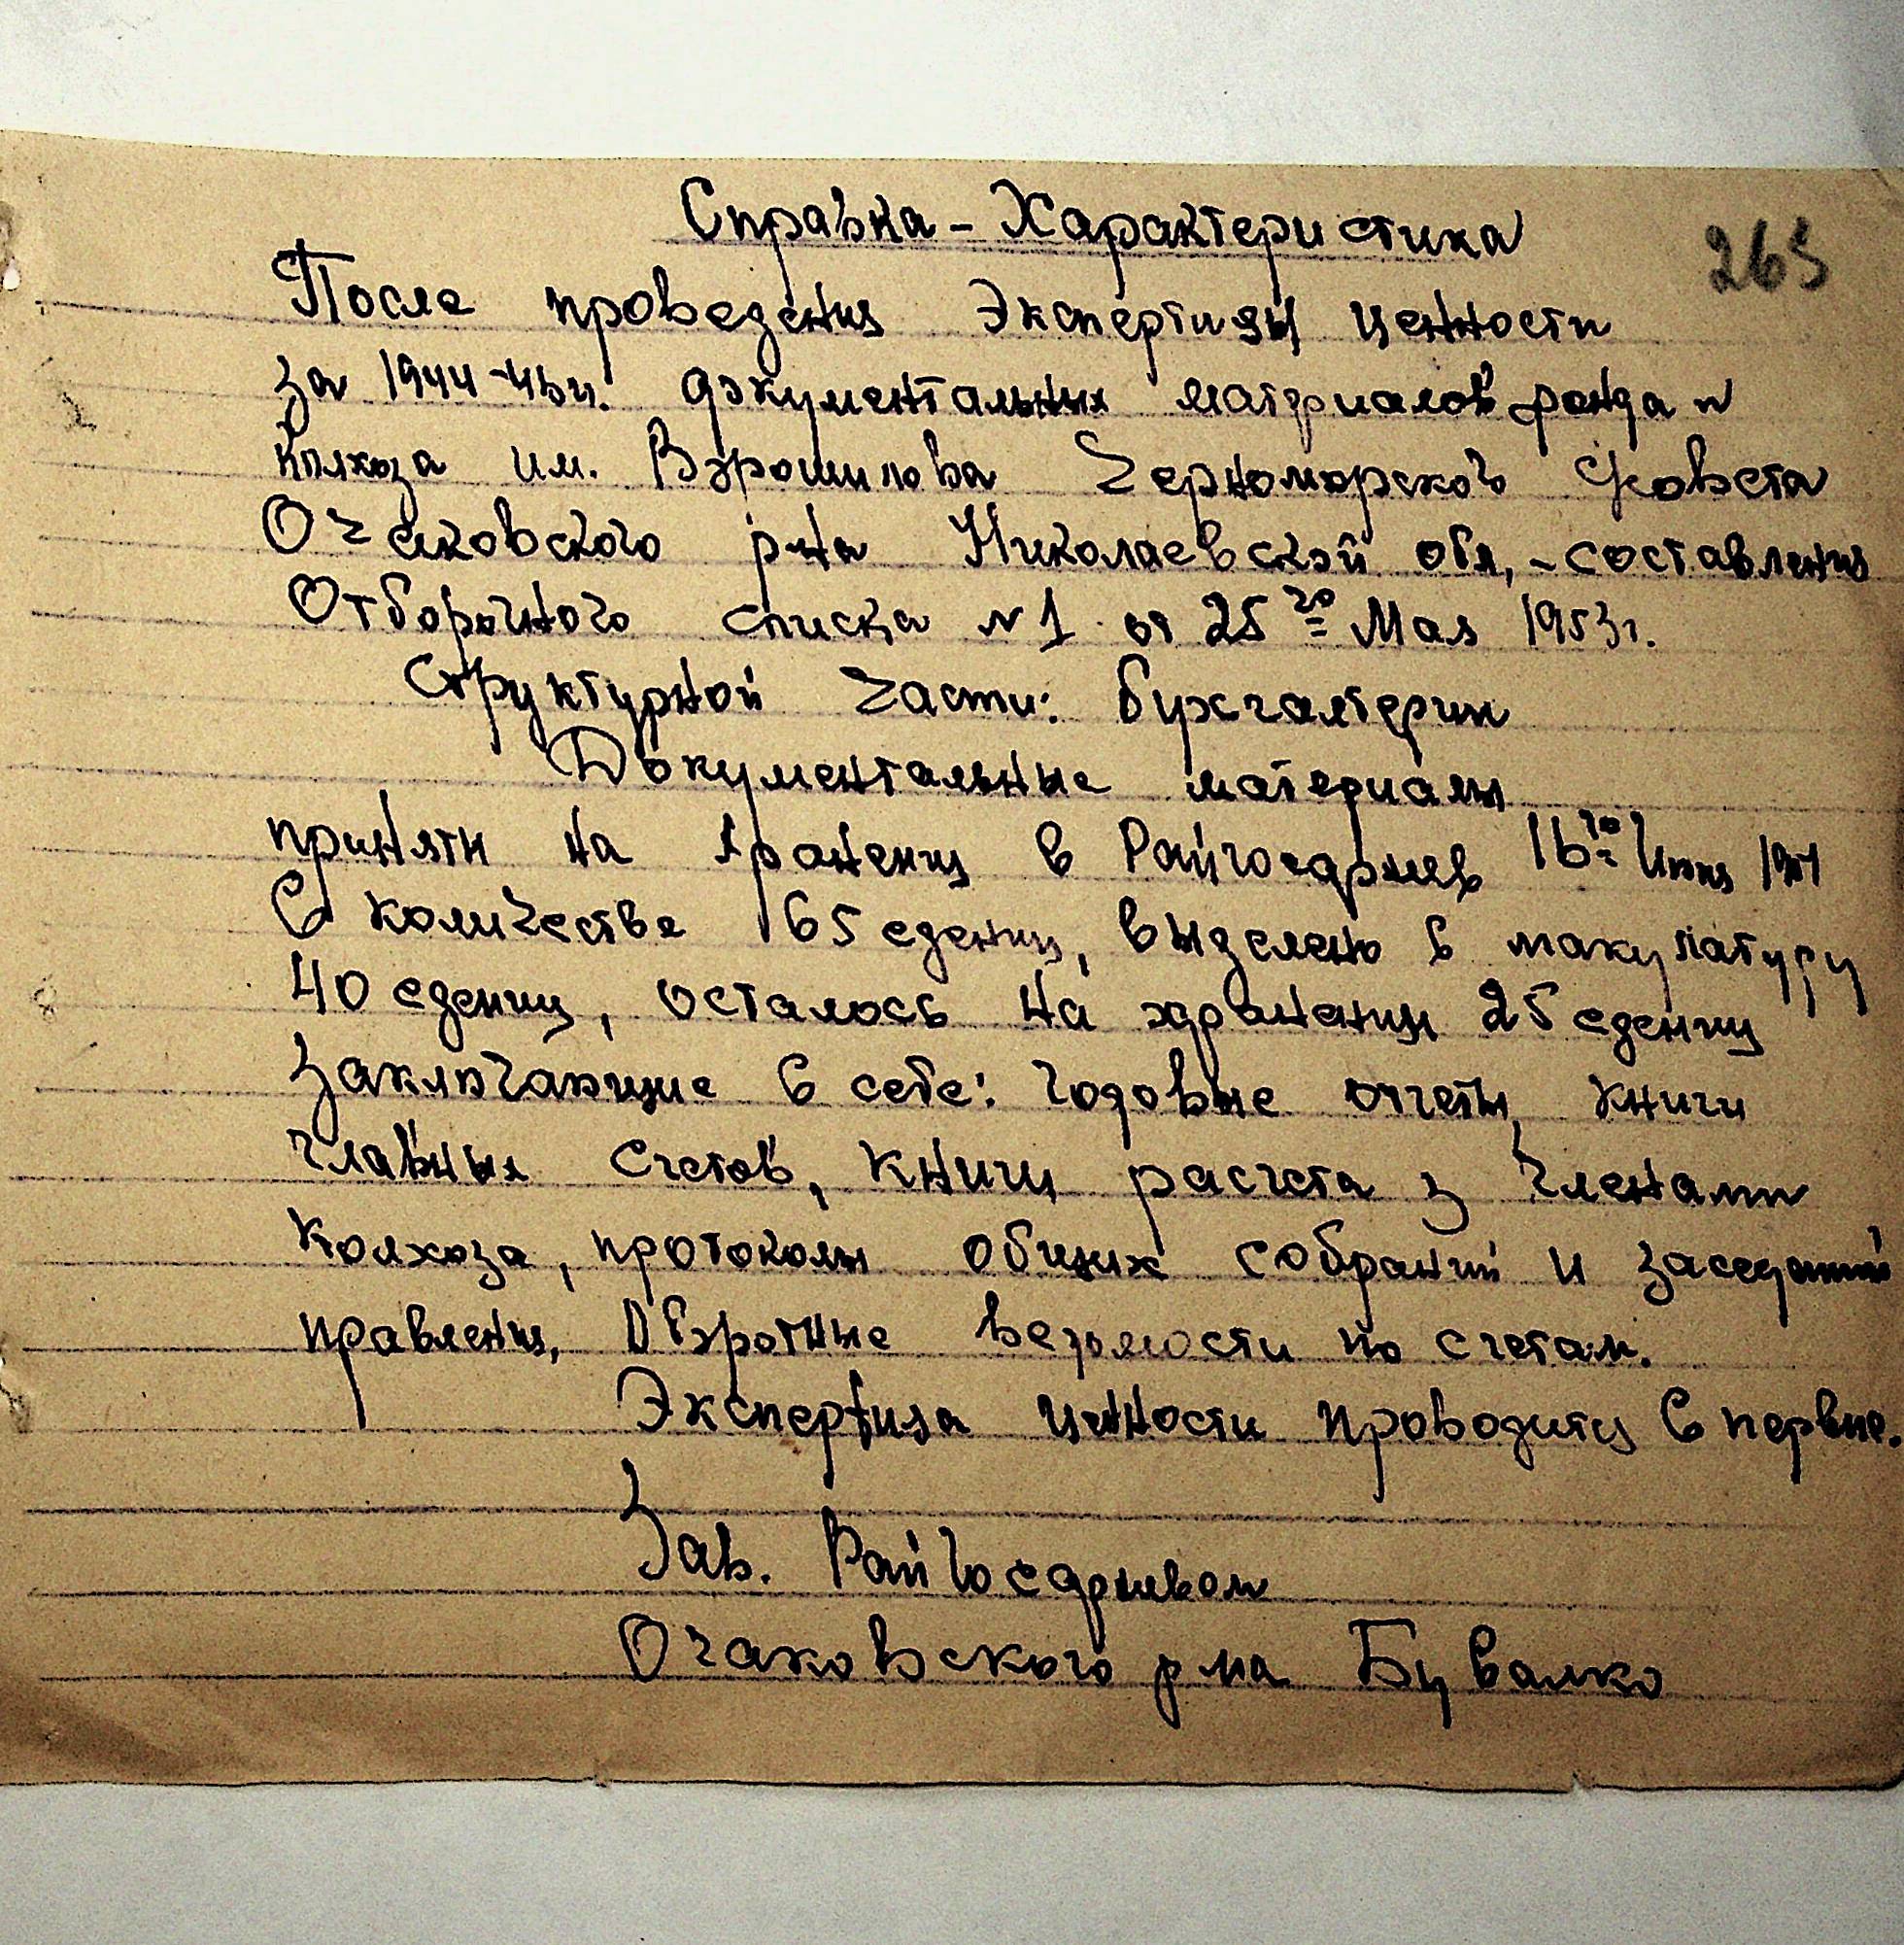 Справка - Характеристика
265
После проведения Экспертизы ценности
за 1944-46гг. документальных материалов фонда №
колхоза им. Ворошилова Черноморского с/совета
Очаковского р-на Николаевской обл, - составления
Отборочного списка №1 от 25го Мая 1953г.
Структурной части: бухгалтерии
Документальные материалы
приняти на хранения в Райгосархив 16го Июня
В количестве 65 едениц, выделено в макулатуру
40 едениц, осталось на хранении 25 едениц
Заключающие в себе: годовые отчеты, книги
главных счетов, книги расчета з членами
колхоза, протоколы общих собраний и заседаний
правления, Оборотные ведомости по счетам.
Экспертиза ценности проводится в первые.
Зав. Райгосархивом
Очаковского р-на Бувалко